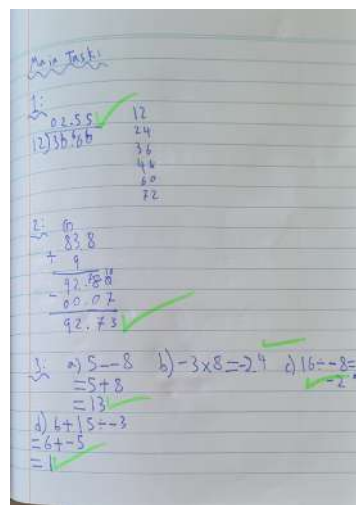 Main Task:
1:
02.55
12)30.66
12
24
36
48
60
72
2:
83.8
+ 9
92.80
- 00.07
92.73
3: a) 5--8 b) -3x8=-24 c) 16÷-8=
=5+8 -2
=13
d) 6+15÷-3
=6+-5
=1